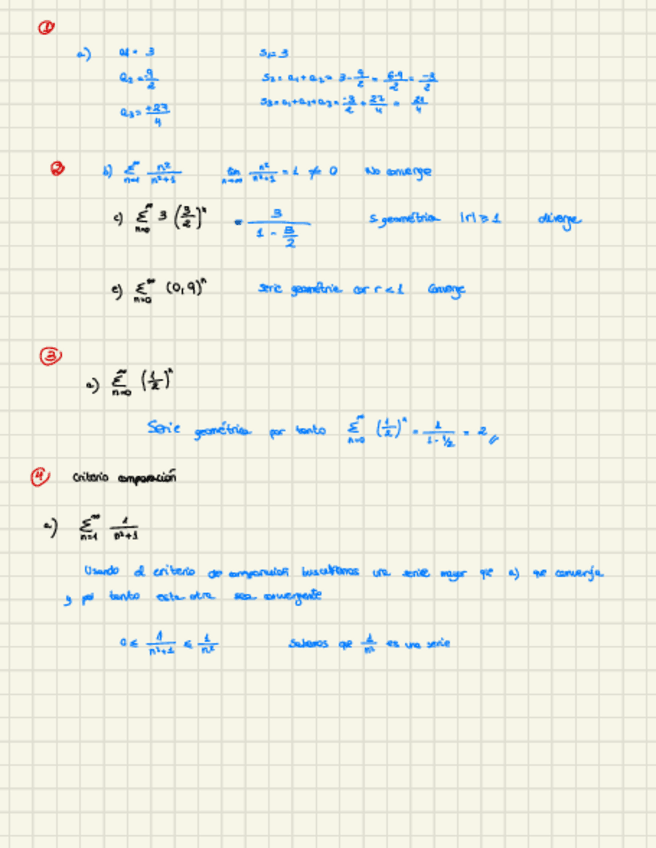 ①
a) a1 = 3 S1 = 3
a2 = 9/2 S2 = a1 + a2 = 3 - 9/2 = 6-9/2 = -3/2
a3 = +27/4 S3 = a1 + a2 + a3 = -3/2 + 27/4 = 21/4
② b) ∑ n=1 ∞ n²/n²+1 lim n→∞ n²/n²+1 = 1 ≠ 0 No converge
c) ∑ n=0 ∞ 3 (3/2)ⁿ = 3/1 - 3/2 S geométrica |r| ≥ 1 diverge
e) ∑ n=0 ∞ (0,9)ⁿ serie geométrica con r < 1 converge
③
a) ∑ n=0 ∞ (1/2)ⁿ
Serie geométrica por tanto ∑ n=0 ∞ (1/2)ⁿ = 1/1-1/2 = 2//
④ Criterio comparación
a) ∑ n=1 ∞ 1/n²+1
Usando el criterio de comparación buscaremos una serie mayor que a) que converja
y por tanto esta otra sea convergente
0 ≤ 1/n²+1 ≤ 1/n² Sabemos que 1/n² es una serie